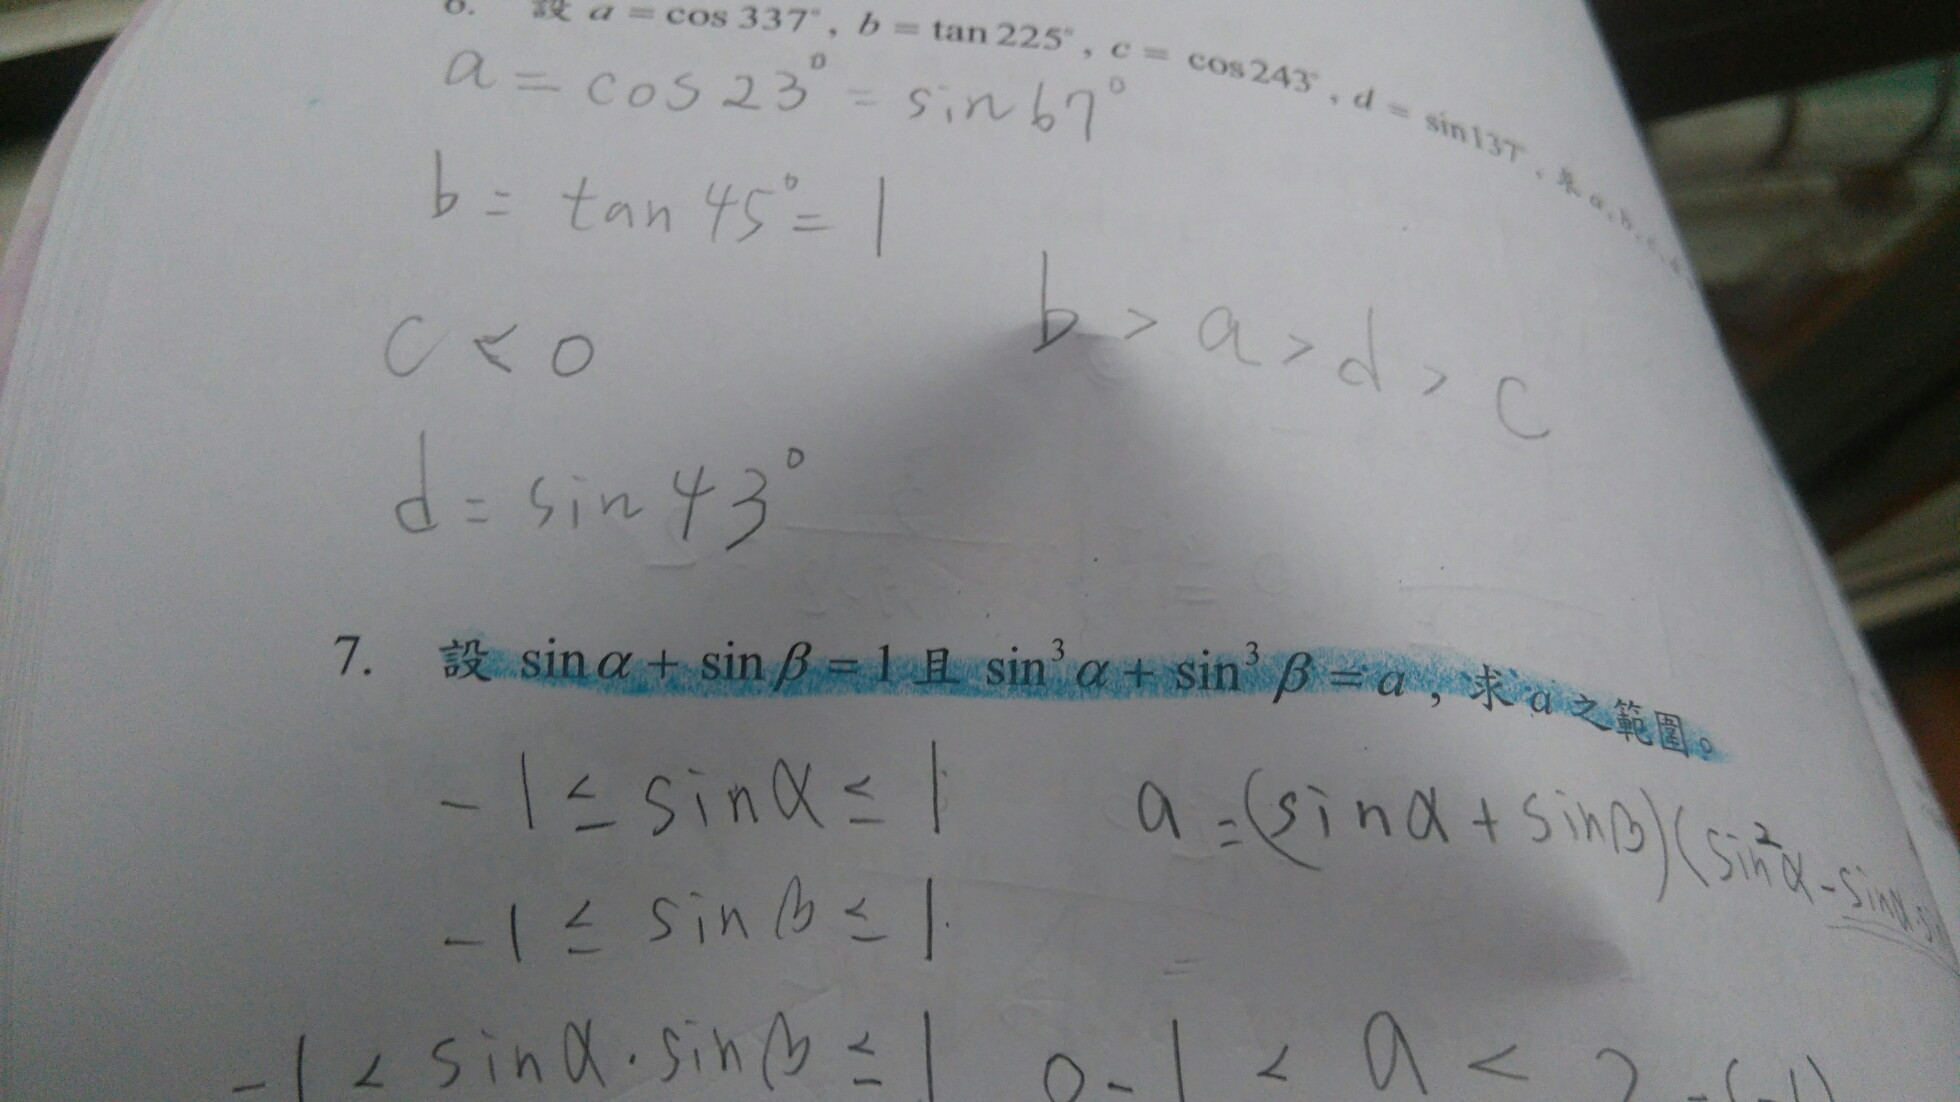 6. 設 a = cos 337°, b = tan 225°, c = cos 243°, d = sin 137°, 求 a、b、c、
a = cos 23° = sin 67°
b = tan 45° = 1
c < 0
b > a > d > c
d = sin 43°
7. 設 sin α + sin β = 1 且 sin³ α + sin³ β = a , 求 a 之範圍。
-1 ≤ sin α ≤ 1
a = (sin α + sin β)(sin² α - sin α · s
-1 ≤ sin β ≤ 1
-1 < sin α · sin β ≤ 1
0 - 1 < a < 2 - (-1)